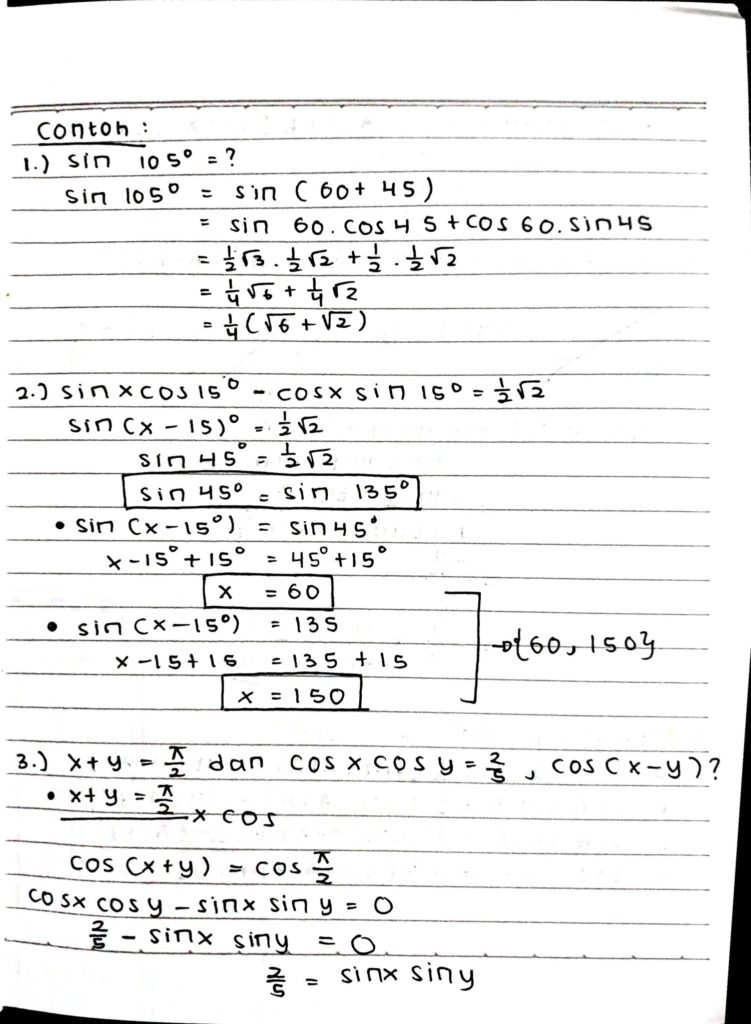 Contoh :
1.) sin 105° = ?
sin 105° = sin (60 + 45)
= sin 60 . cos 45 + cos 60 . sin 45
= ½√3 . ½√2 + ½ . ½√2
= ¼√6 + ¼√2
= ¼(√6 + √2)
2.) sin x cos 15° - cos x sin 15° = ½√2
sin (x - 15)° = ½√2
sin 45° = ½√2
sin 45° = sin 135°
• sin (x - 15°) = sin 45°
x - 15° + 15° = 45° + 15°
x = 60
• sin (x - 15°) = 135
x - 15 + 15 = 135 + 15
→ {60, 150}
x = 150
3.) x + y = π/2 dan cos x cos y = 2/5 , cos (x - y) ?
• x + y = π/2
x cos
cos (x + y) = cos π/2
cos x cos y - sin x sin y = 0
2/5 - sin x sin y = 0
2/5 = sin x sin y